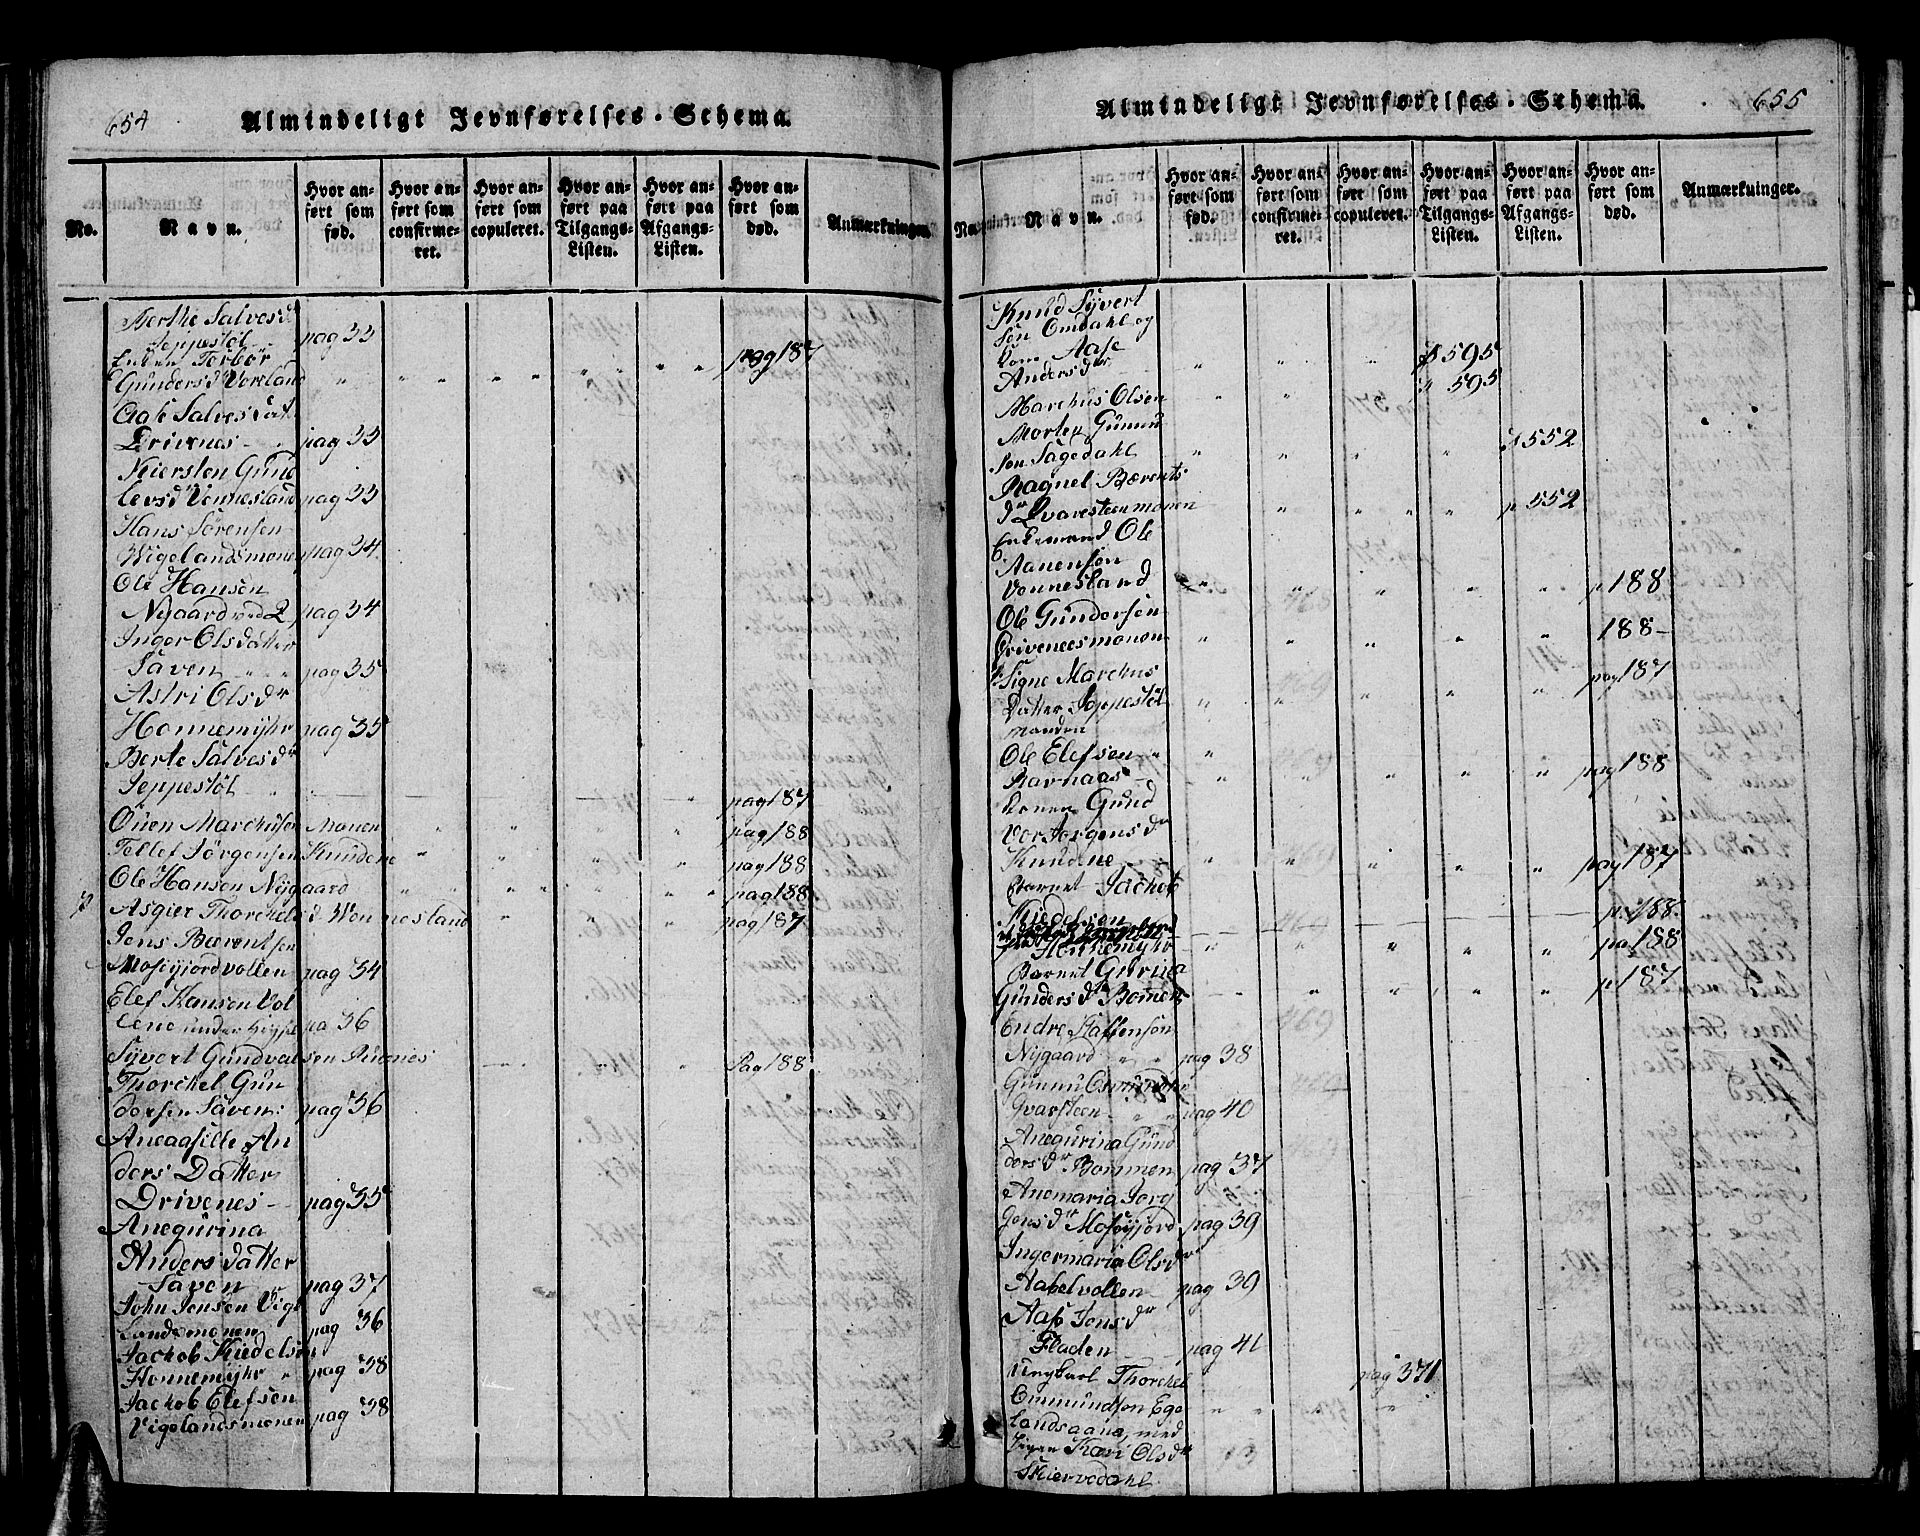 654
Almindeligt Jevnførelses-Schema.
No.
Navn.
Hvor anført som fød.
Hvor anført som confirmeret.
Hvor anført som copuleret.
Hvor anført paa Tilgangs-Listen.
Hvor anført paa Afgangs-Listen.
Hvor anført som død.
Anmærkninger.
Berthe Salvesdr
Seppestøl pag 33
Enken Torbor
Gundersdr Vonsland pag 187
Aase Salves Datt
Drivenes pag 33
Kiersten Gund
levsd Vennesland pag 33
Hans Sørensen
Wigelandsmonen pag 34
Ole Hansen
Nygaard pag 34
Inger Olsdatter
Saven pag 35
Astri Olsdr
Honnemyhr pag 35
Berte Salvesdr
Seppestøl pag 187
Ouen Marchusen Monen pag 188
Tellef Jørgensen Knudene pag 188
Ole Hansen Nygaard pag 188
Asgier Thorckels d Vennesland pag 187
Jens Bærentsen
Mosfjordvollen pag 34
Elef Hansen Vol
lene under pa 36
Syvert Gundvalsen Ruenes Pag 188
Thorckel Gun
dersen Saven pag 36
Aneaasille An
ders Datter
Drivenes pag 35
Anegurina
Anders Datter
Saven pag 37
John Jensen Vige
landsmonen pag 36
Jachob Kiedelsen
Honnemyhr pag 38
Jachob Elefsen
Vigelandsmonen pag 38
655
Almindeligt Jevnførelses-Schema.
No.
Navn.
Hvor anført som fød.
Hvor anført som confirmeret.
Hvor anført som copuleret.
Hvor anført paa Tilgangs-Listen.
Hvor anført paa Afgangs-Listen.
Hvor anført som død.
Anmærkninger.
Knud Syvert
søn Omdahl og
Kone Aase
Andersdr p 595
Marchus Olsen p 595
Morten Gunnu
søn Sagedahl p 552
Ragnel Bærents
dr Qvarsteenmonen p 552
Enkemand Ole
Aanensøn
Vonnesland p 188
Ole Gundersen
Drivenesmonen 188
Signe Marchus
Datter Seppestøl pag 187
manden
Ole Elefsen
Ravnaas pag 188
Konen Gund
vor Jørgensdr
Knudene pag 187
Barnet Jachob
Kiedelsen p. 188
Honnemyhr pa 188
Barnet Gurina
Gundersdr Bomen p 187
Endre Staffensøn
Nygaard pag 38
Gunnu Osmundsen
Qvarsteen pag 40
Anegurina Gund
dersdr Bommen pag 37
Anemaria Jørg
Jensdr Mosfyjord pag 39
Ingermaria Olsdr
Aabelvollen pag 39
Aase Jonsdr
Fladen pag 41
Ungkarl Thorckel pag 371
Ommundsøn Ege
landsaane, med
Pigen Kari Olsdr
Skiervedahl